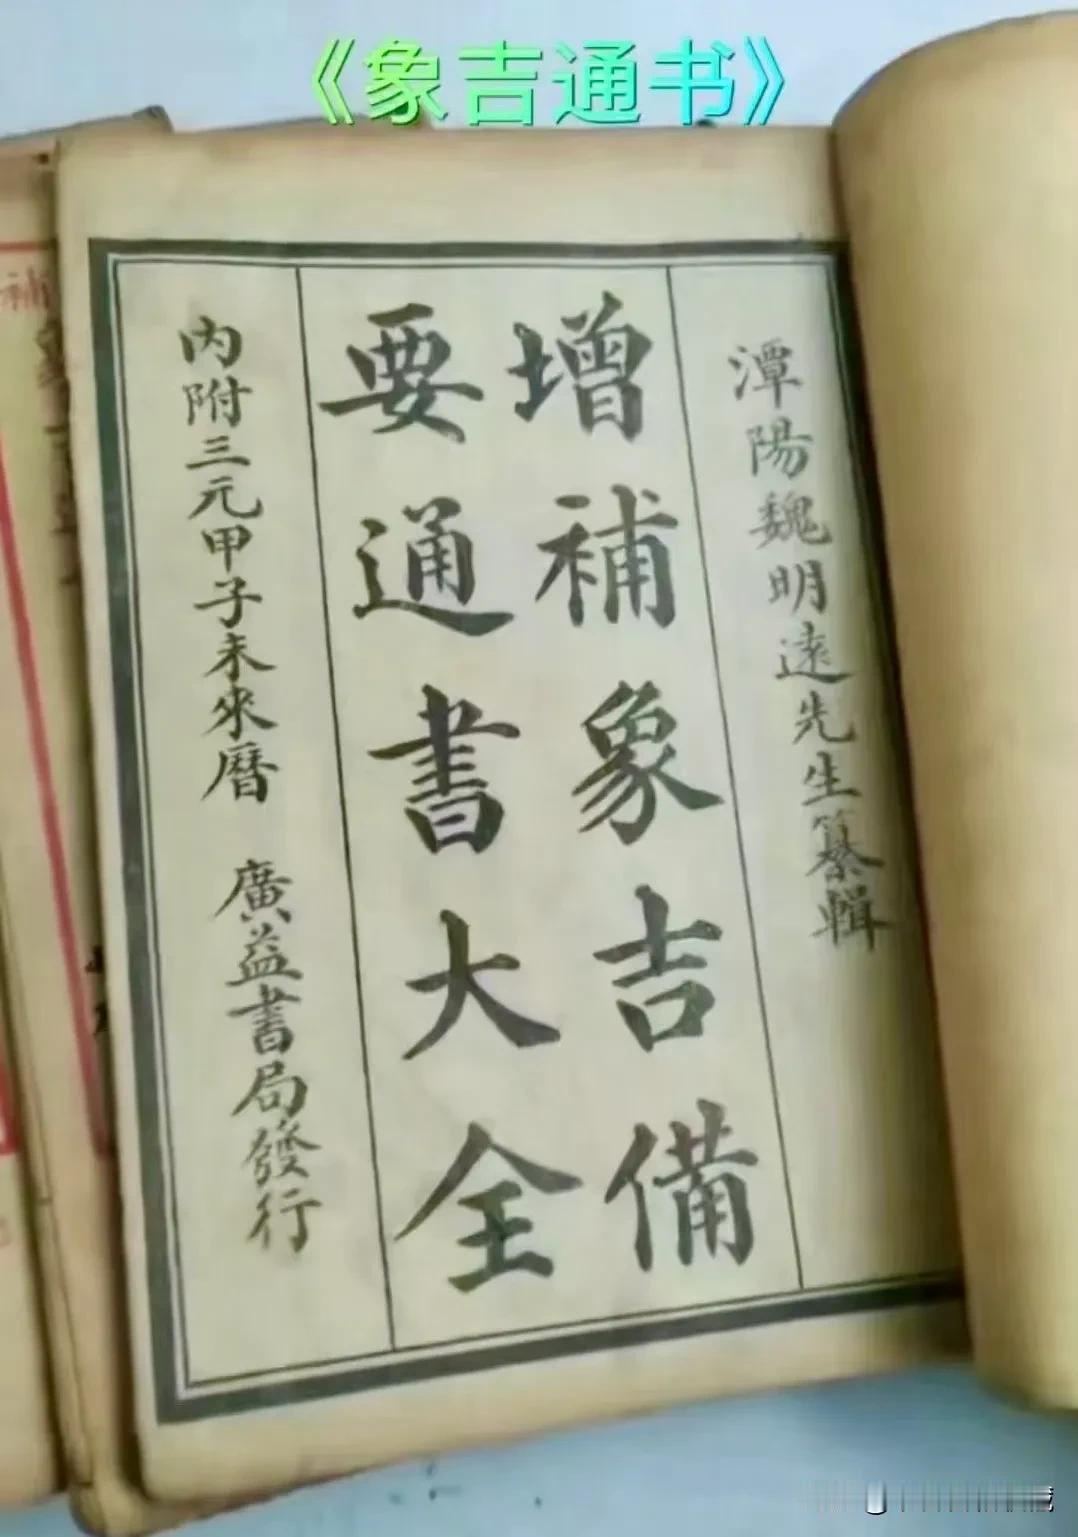 《象吉通书》
潭陽魏明遠先生纂輯
增補象吉備
要通書大全
內附三元甲子未來曆 廣益書局發行
補